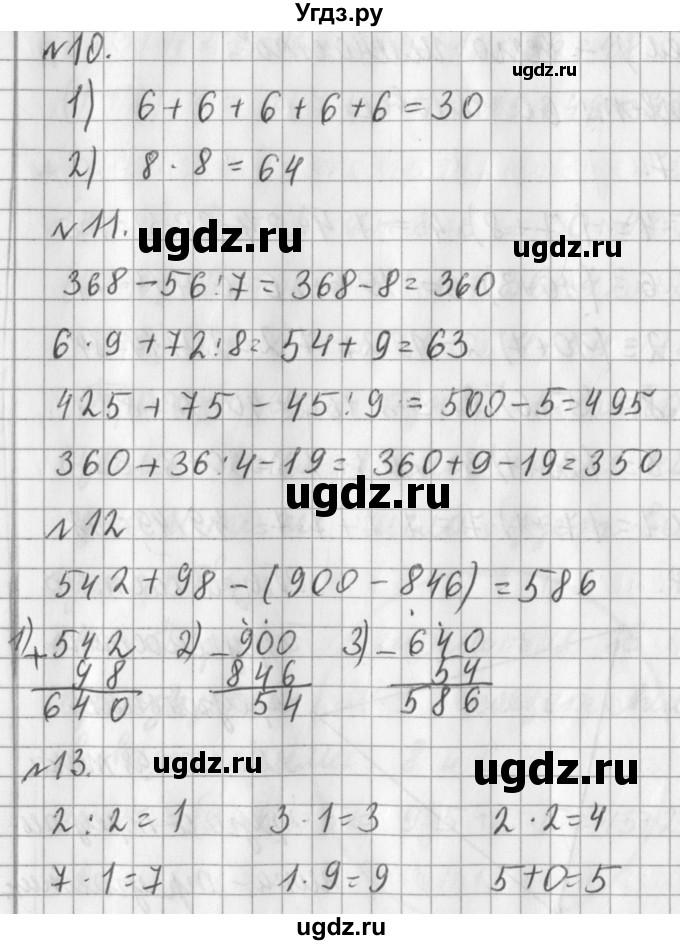 Угдз.ру
№10.
ugdz.ru
1) 6 + 6 + 6 + 6 + 6 = 30
2) 8 · 8 = 64
№11.
ugdz.ru
ugdz.ru
368 - 56 : 7 = 368 - 8 = 360
6 · 9 + 72 : 8 = 54 + 9 = 63
425 + 75 - 45 : 9 = 500 - 5 = 495
360 + 36 : 4 - 19 = 360 + 9 - 19 = 350
ugdz.ru
№12
542 + 98 - (900 - 846) = 586
1) + 542 2) - 900 3) - 640
98 846 54
640 54 586
№13.
ugdz.ru
ugdz.ru
2 : 2 = 1 3 · 1 = 3 2 · 2 = 4
7 · 1 = 7 1 · 9 = 9 5 + 0 = 5
ugdz.ru